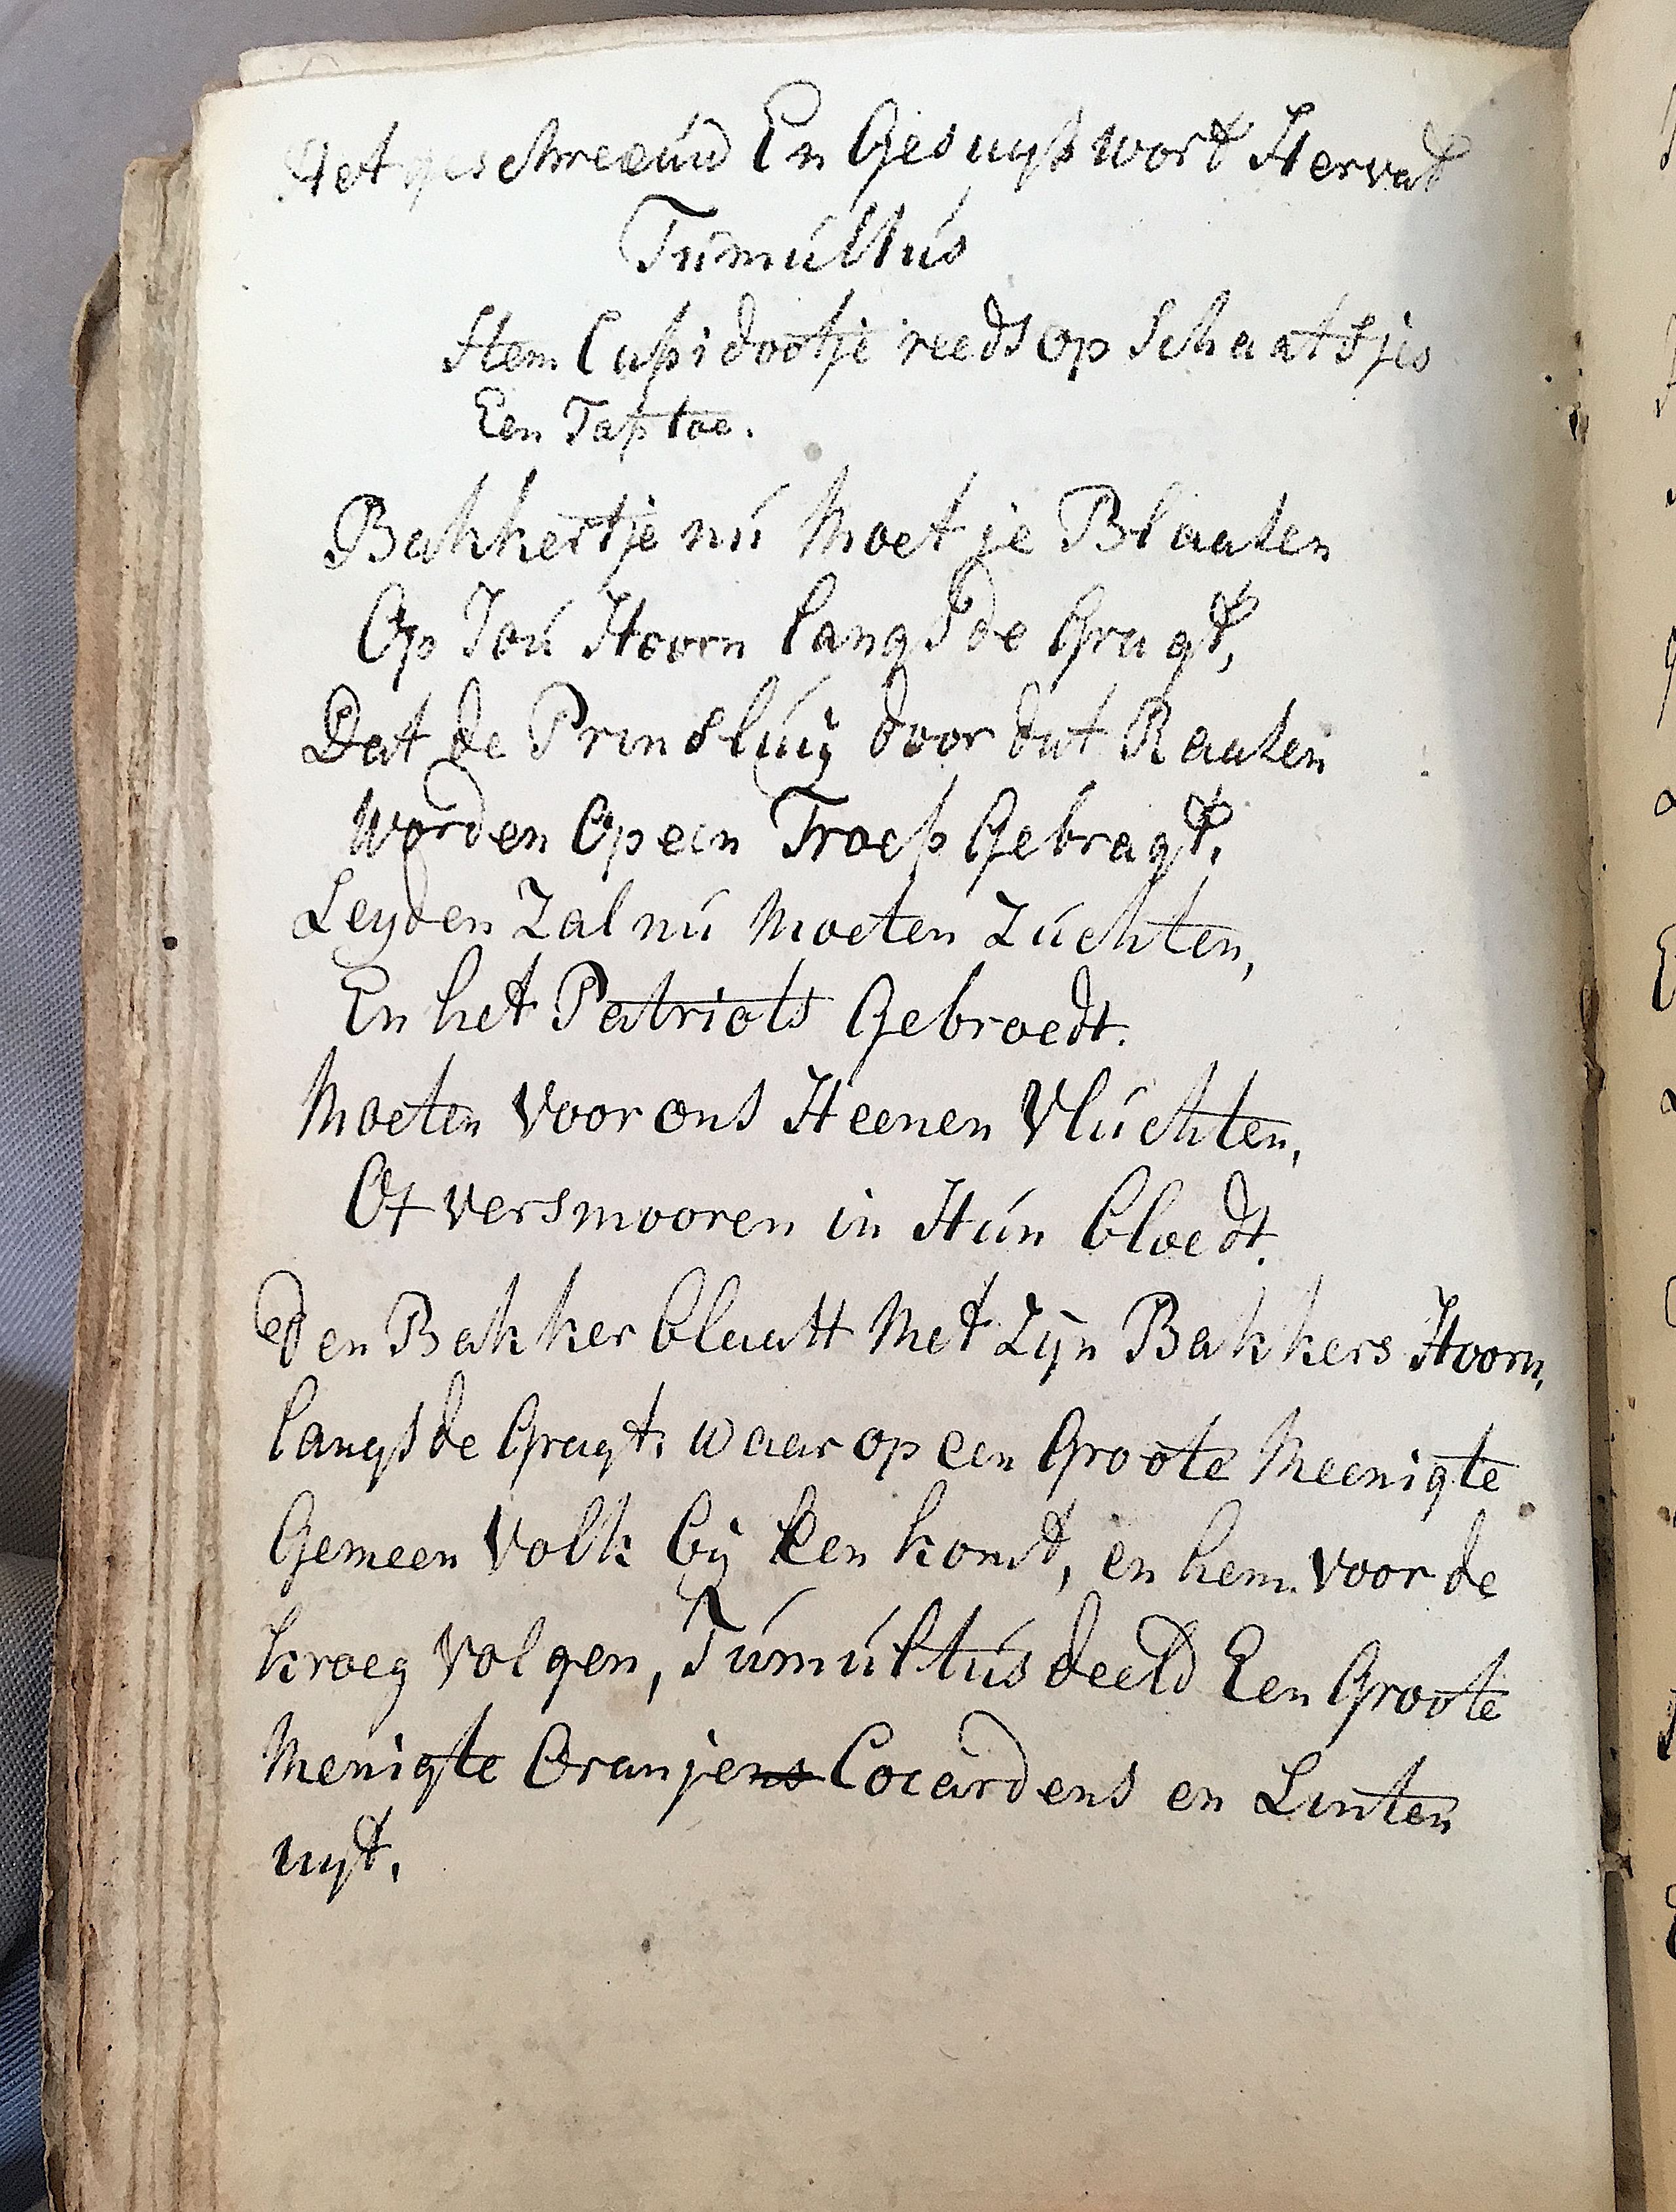 Het geschreeuw En Gesuyß wort Hervat
Tumultus
Stem Cupidootje reeds op Schaatsjes
Een Taptoe.
Bakkertje nú Moet je Blaaten
Op Joú Hoorn langs de Gragt,
Dat de Prinslúij door dat Raaten
Worden Op een Troep Gebragt,
Leyden Zal nú Moeten Zúchten,
En het Patriots Gebroedt.
Moeten Voor ons Heenen Vlúchten,
Of versmooren in Hún bloedt.
Den Bakker blaatt Met Zijn Bakkers Hoorn,
langs de Gragt, waar op een Groote Meenigte
Gemeen Volk bij Een komt, en hem voor de
kroeg Volgen, Túmúltús deeld Een Groote
Menigte Oranjens Cocardens en Linten
uyt.